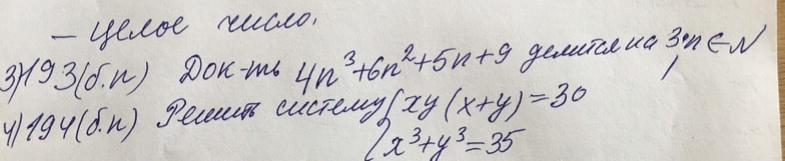 — Целое число.
3) 193(б.п) Док-ть 4n³+6n²+5n+9 делится на 3, n∈N
4) 194(б.п) Решить систему { xy(x+y)=30
x³+y³=35